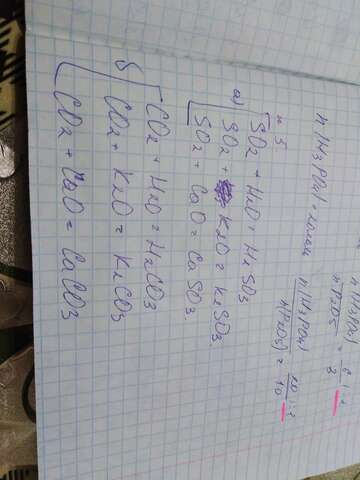 n (H3PO4) = 10 моль
n(H3PO4)
n(P2O5)
n 5
а) SO2 + H2O = H2SO3
SO2 + K2O = K2SO3
SO2 + CaO = CaSO3
б CO2 + H2O = H2CO3
CO2 + K2O = K2CO3
CO2 + CaO = CaCO3